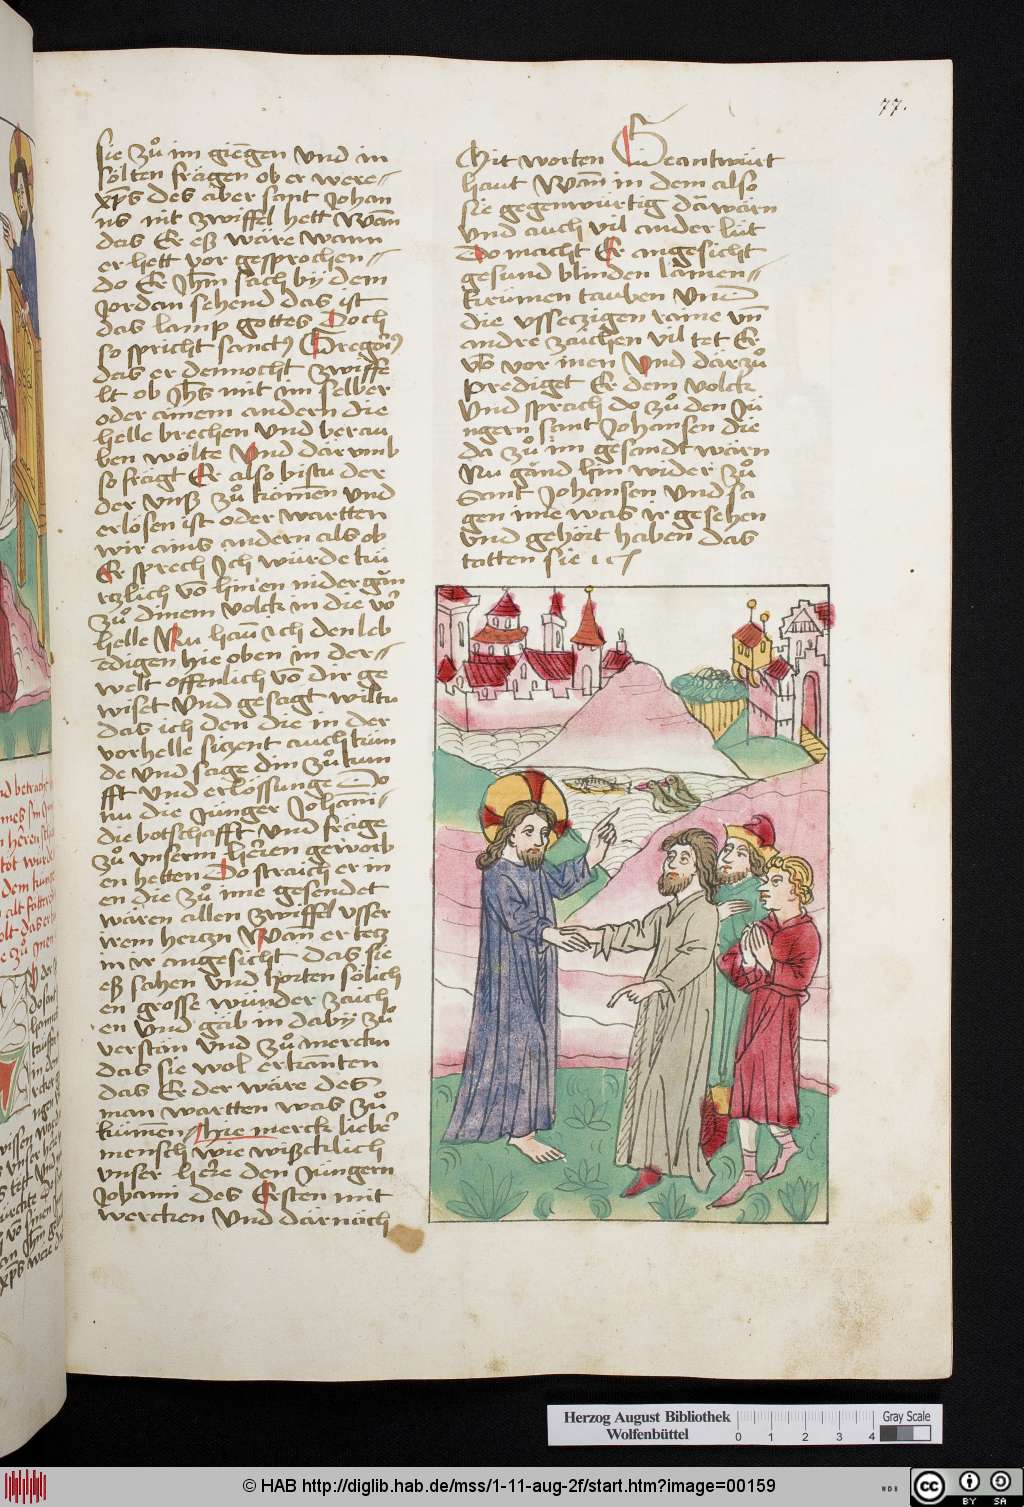 77.
sie zů im giengen vnd in
sölten frägen ob er were
xp̄s des aber sant Johan
ns nit zwiffel hett Wan̄
das Er eß wäre wann
er hett vor gesprochen
do Er Jhm̄ sach by dem
Jordan sehend das ist
das lamp gottes Doch
so spricht sanct9 Gregori9
das er dennocht zwiffe
lt ob Jhs̄ mit im selber
oder ainem andern die
helle brechen vnd berau
ben wölte Vnd därumb
so frägt Er also bistu der
der vnß zů kömen vnd
erlösen ist oder wartten
wir ains andern als ob
Er sprech Ich würde kü
rczlich vō hinen nider gān
zů dinem volck in die vor
helle Nu hān ich den leb
edigen hie oben in der
welt offenlich vō dir ge
wiset Vnd gesagt wiltu
das ich den die in der
vorhelle siczent auch kün
de vnd sage din zů kun
fft vnd erlössunge Do
nu die Jünger Johanni
die botschafft vnd fräge
zů vnserm herren geworb
en hetten Do straich er in
en die zů ime gesendet
wären allen zwiffel vsser
irem herczn Wan̄ er lecz
in ir angesicht das sie
eß sahen vnd horten sölich
en grosse wunder zaich
en vnd gäb in daby zů
verstän vnd zů mercken
das sie wol erkan̄ten
das Er der wäre des
man wartten was zů
kümen hie merck lieber
mensch wie wißcklich
vnser herre den Jüngern
Johanni des Ersten mit
wercken Vnd därnäch
Mit worten Geantwürt
haut Wan̄ in dem also
sie gegenwürtig dā wärn
vnd auch vil ander lüt
Do macht Er angesicht
gesund blinden lämen
krümen tauben Vnd
die vsseczigen raine vn̄
andre zaichen vil tet Er
vō vor inen Vnd därzů
prediget Er dem volck
Vnd sprach do zů den Jü
ngern sant Johansen die
da zů im gesandt wärn
Nu gänd hin wider zů
Sant Johansen Vnd sa
gen ime was ir gesehen
vnd gehört haben das
tatten sie
Herzog August Bibliothek
Wolfenbüttel
0 1 2 3 4
Gray Scale
© HAB http://diglib.hab.de/mss/1-11-aug-2f/start.htm?image=00159
WDB
cc BY SA